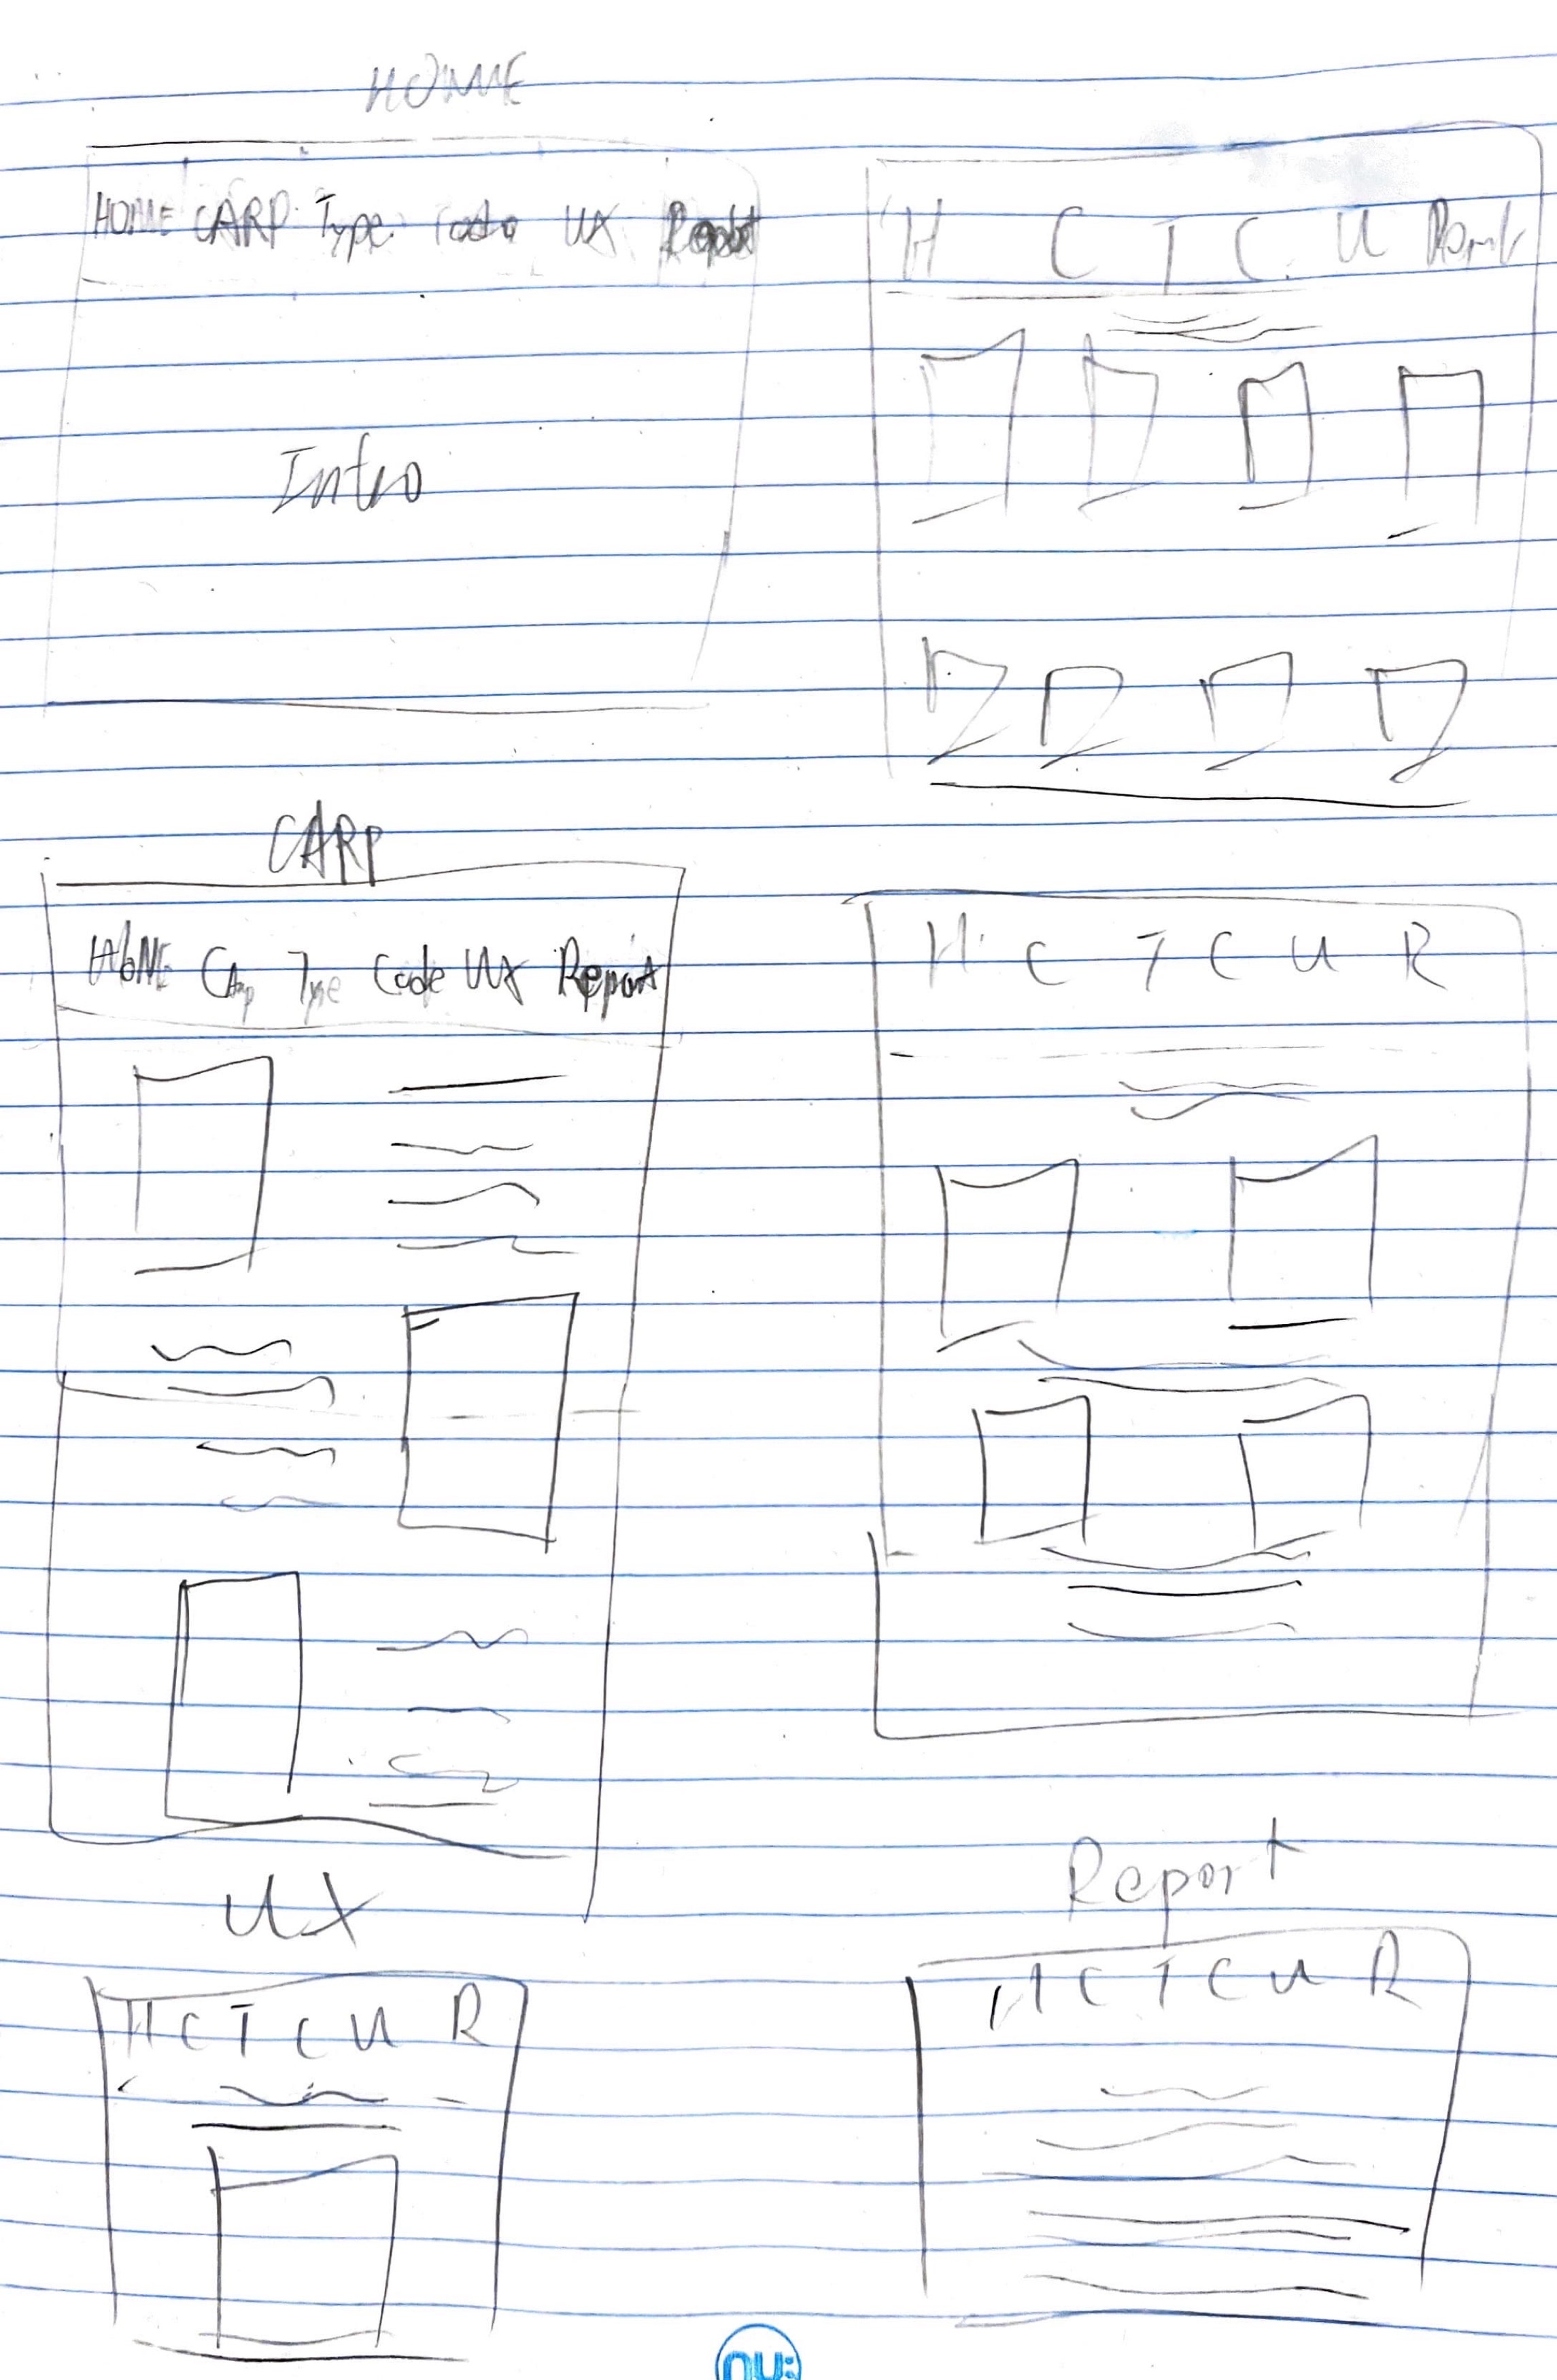 HOME
HOME CARP Type Code UX Report
Intro
H C T C U
CARP
HOME CArp Type Code UX Report
H C T C U R
UX
H C T C U R
Report
H C T C U R
nu: